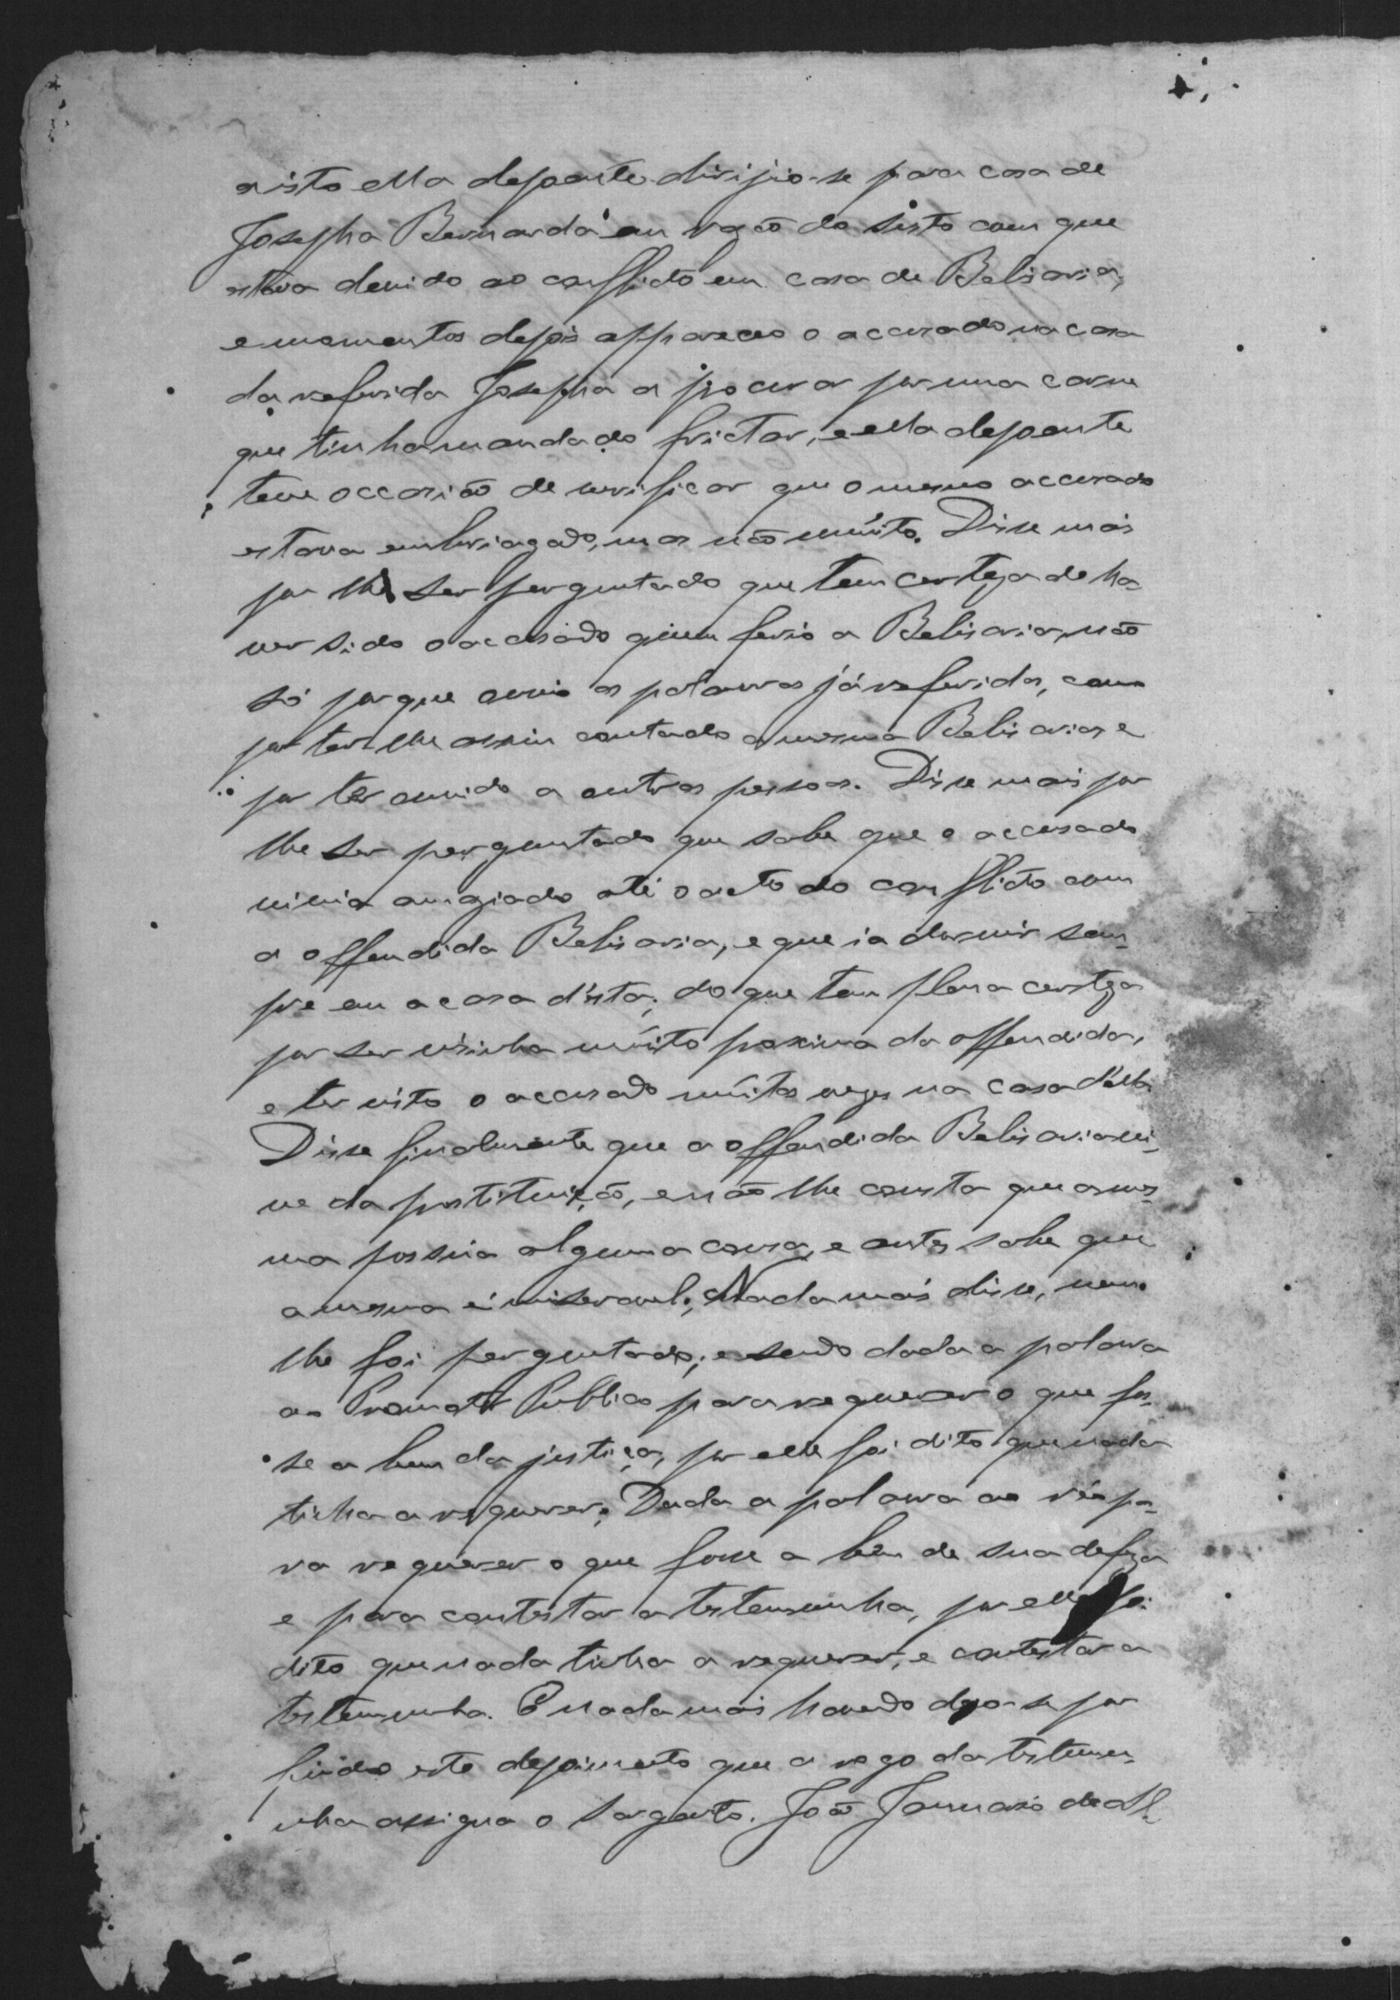 nisto ella depoente dirijio-se para casa de
Josepha Bernarda em rasão do susto com que
estava devido ao conflicto em casa de Belisaria,
e momentos depois appareceo o accusado na casa
da referida Josepha a procurar por uma carne
que tinha mandado frictar, e ella depoente
teve occasião de verificar que o mesmo accusado
estava embriagado, mas não muito. Disse mais
por lhe ser perguntado que tem certeza de ha-
ver sido o accusado quem ferio a Belisaria, não
só porque ouvio as palavras já referidas, como
por ter-lhe assim contado a mesma Belisaria e
por ter ouvido a outras pessoas. Disse mais por
lhe ser perguntado que sabe que o accusado
vivia amaziado até o acto do conflicto com
a offendida Belisaria, e que ia dormir sem-
pre em a casa d'esta; do que tem plena certeza
por ser visinha muito proxima da offendida,
e ter visto o accusado muitas vezes na casa d'ella.
Disse finalmente que a offendida Belisaria vi-
ve da prostituição, e não lhe consta que a mes-
ma possuia alguma cousa, e antes sabe que
a mesma é miseravel; Nada mais disse, nem
lhe foi perguntado; e sendo dada a palavra
ao Promotor Publico para requerer o que fos-
se a bem da justiça, por elle foi dito que nada
tinha a requerer. Dada a palavra ao réo pa-
ra requerer o que fosse a bem de sua defeza
e para contestar a testemunha, por elle foi
dito que nada tinha a requerer, e contestar a
testemunha. E nada mais havendo deo-se por
findo este depoimento que a rogo da testemu-
nha assigna o Sargento. João Januario de